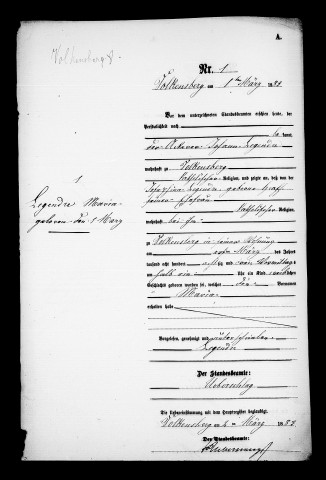 A.
Volkensberg
Nr. 1
Volkensberg am 1ten März 18
Vor dem unterzeichneten Standesbeamten erschien heute, der
Persönlichkeit nach
kannt,
Johann Legendre
wohnhaft zu Volkensberg
katholischer Religion, und zeigte an, daß von der
Josephina Legendre geborene
seiner Ehefrau
katholischer Religion,
wohnhaft bei ihm
zu Volkensberg in seiner Wohnung
am ersten März des Jahres
tausend acht zig und ein Vormittags
um halb ein Uhr ein Kind weiblichen
Geschlechts geboren worden sei, welches den Vornamen
Maria
erhalten habe
1
Legendre Maria
geboren den 1 März
Vorgelesen, genehmigt und unterschrieben
Legendre
Der Standesbeamte:
Ueberschlag
Die Uebereinstimmung mit dem Hauptregister beglaubigt
Volkensberg am März 18
Der Standesbeamte: